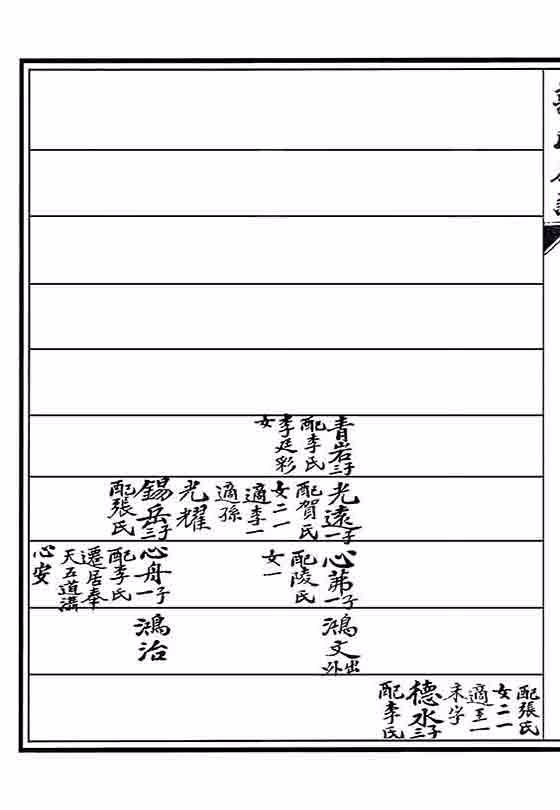 青岩三子
配李氏
李廷彩
女
光遠一子
配賀氏
女二一
適李一
適孫
光耀
錫岳三子
配張氏
心茀一子
配陵氏
女一
心舟一子
配李氏
遷居奉
天五道溝
心安
鴻文外出
鴻治
配張氏
女二一
適王一
未字
德水三子
配李氏